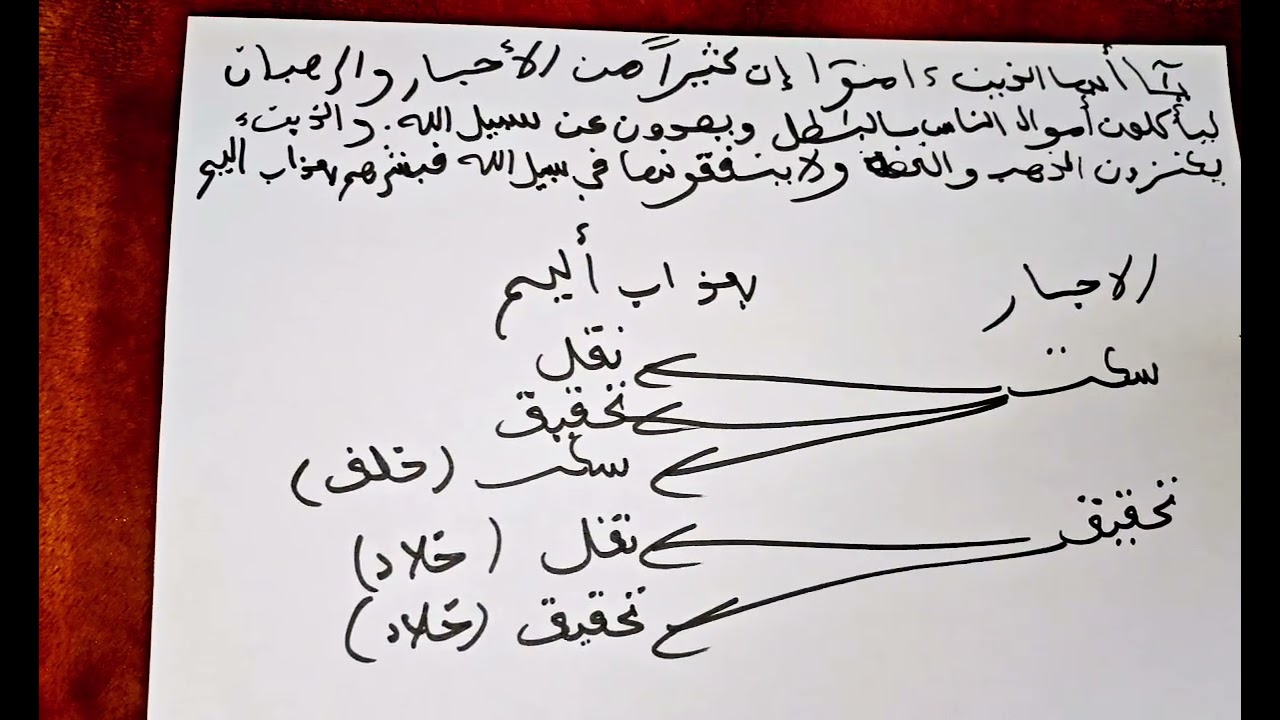 يـٓأيها الذين ءامنوا إن كثيراً من الأحبار والرهبان
ليأكلون أموال الناس بالبـٰطل ويصدون عن سبيل الله. والذين
يكنزون الذهب والفضة ولا ينفقونها في سبيل الله فبشرهم بعذاب أليم
الاحبار بعذاب أليم
سكت نقل
تحقيق
سكت (خلف)
تحقيق نقل (خلاد)
تحقيق (خلاد)